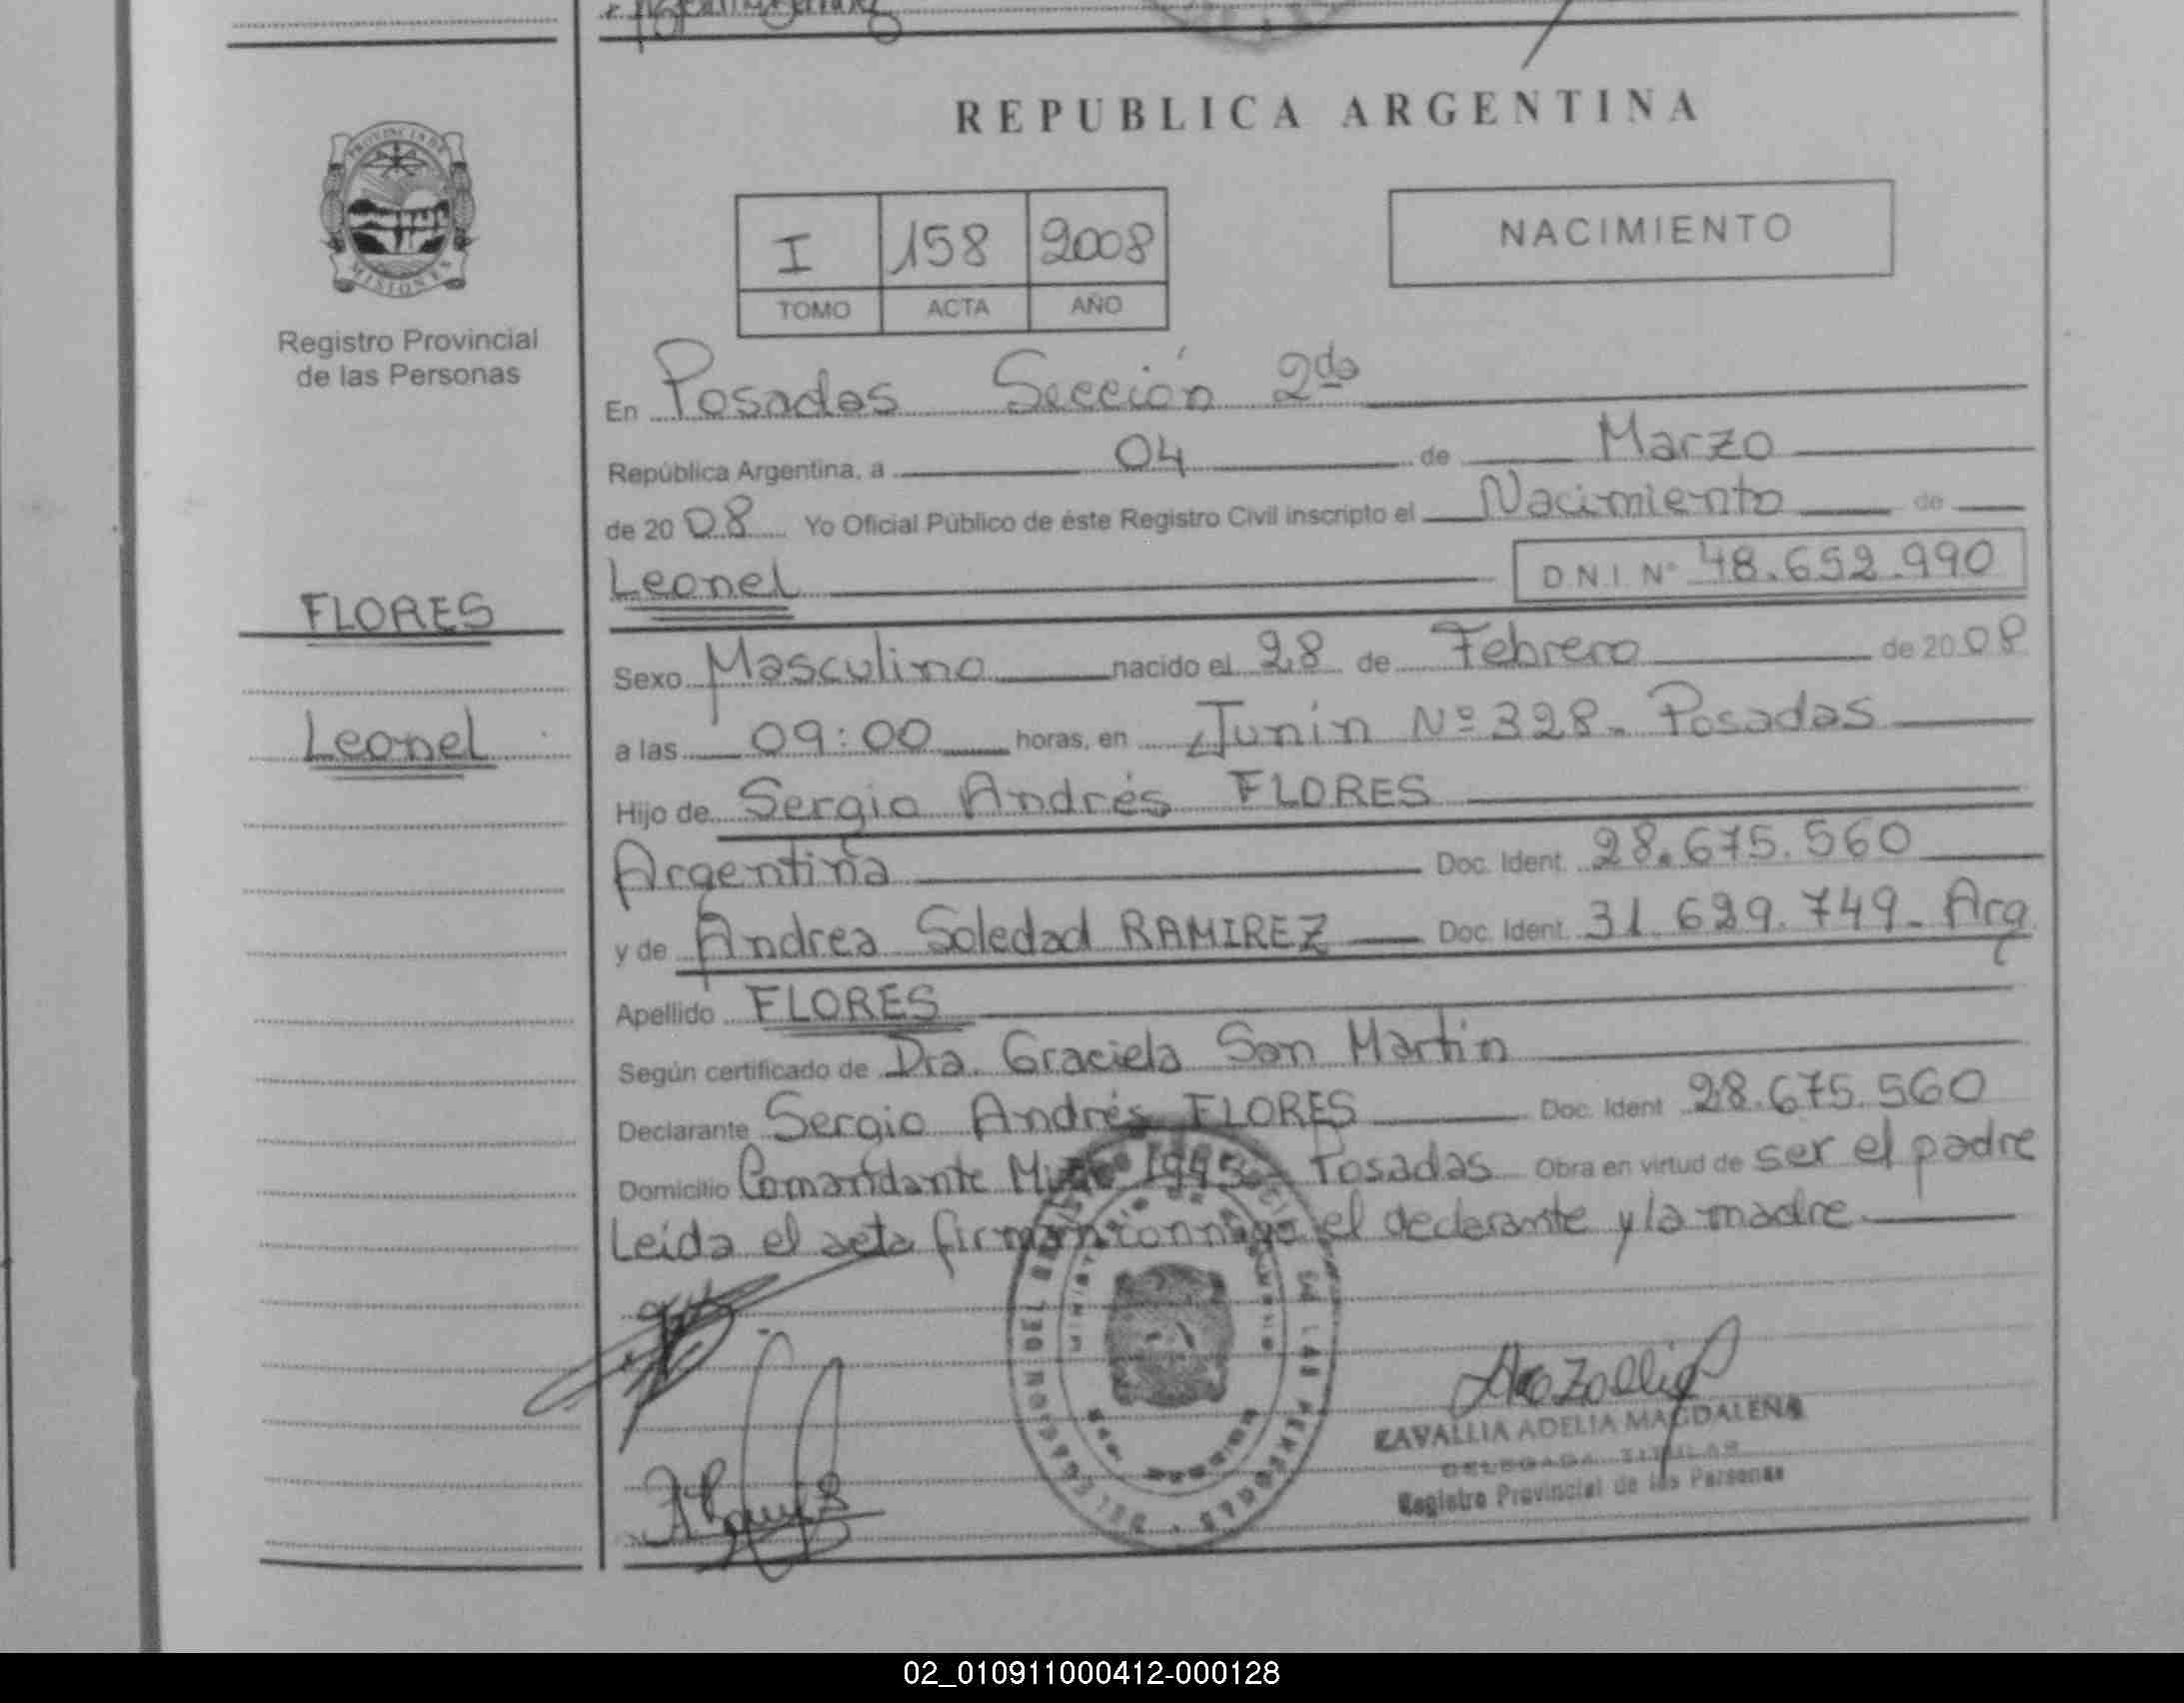 REPUBLICA ARGENTINA
PROVINCIA DE
MISIONES
Registro Provincial
de las Personas
I 158 2008
TOMO ACTA AÑO
NACIMIENTO
En Posadas Sección 2da
República Argentina, a 04 de Marzo
de 2008 Yo Oficial Público de éste Registro Civil inscripto el Nacimiento de
Leonel D.N.I. Nº 48.652.990
FLORES
Leonel
Sexo Masculino nacido el 28 de Febrero de 2008
a las 09:00 horas, en Junin Nº 328. Posadas
Hijo de Sergio Andrés FLORES
Argentina Doc. Ident. 28.675.560
y de Andrea Soledad RAMIREZ Doc. Ident. 31.629.749- Arg
Apellido FLORES
Según certificado de Dra. Graciela San Martin
Declarante Sergio Andrés FLORES Doc. Ident 28.675.560
Domicilio Comandante Posadas Obra en virtud de ser el padre
Leida el acta firman conmigo el declarante y la madre
ZAVALLIA ADELIA MAGDALENA
DELEGADA TITULAR
Registro Provincial de las Personas
02_010911000412-000128